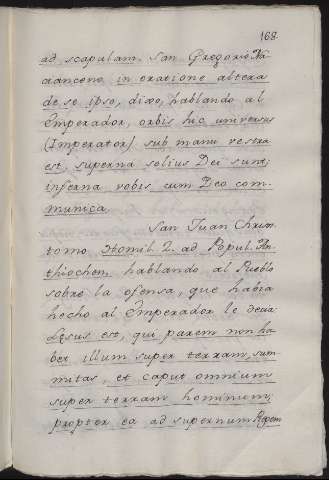 168
ad scapulam. San Gregorio Na-
cianceno in oratione altera
de se ipso, dixo, hablando al
Emperador, orbis hic universus
(Imperator) sub manu vestra
est, superna solius Dei sunt;
inferna vobis cum Deo com-
munica
San Juan Chrisos
tomo Homil. 2. ad Popul. An-
thiochem. hablando al Pueblo
sobre la ofensa, que havia
hecho al Emperador le decia
Lęsus est, qui parem non ha-
bet illum super terram, sum-
mitas, et caput omnium
super terram hominum;
propter ea ad supernum Regem